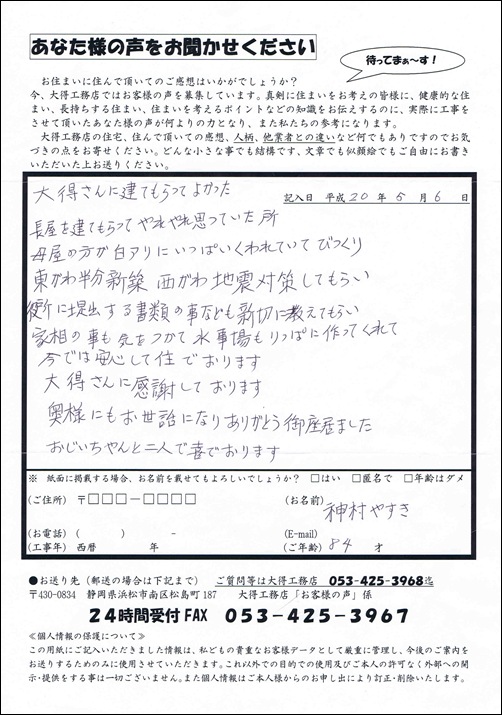 あなた様の声をお聞かせください
待ってまぁ～す!
お住まいに住んで頂いてのご感想はいかがでしょうか?
今、大得工務店ではお客様の声を募集しています。真剣に住まいをお考えの皆様に、健康的な住
まい、長持ちする住まい、住まいを考えるポイントなどの知識をお伝えするのに、実際に工事を
させて頂いたあなた様の声が何よりの力となり、また私たちの参考になります。
大得工務店の住宅、住んで頂いての感想、人柄、他業者との違いなど何でもありですのでお気
づきの点をお寄せください。どんな小さな事でも結構です、文章でも似顔絵でもご自由にお書き
いただいた上お送りください。
大得さんに建てもらってよかった
記入日 平成 20 年 5 月 6 日
長屋を建てもらってやれやれ思っていた所
母屋の方が白アリにいっぱいくわれていてびっくり
東がわ半分新築 西がわ地震対策してもらい
役所に提出する書類の事なども新切に教えてもらい
家相の事も気をつかて水事場もりっぱに作ってくれて
今では安心して住でおります
大得さんに感謝しております
奥様にもお世話になりありがとう御座居ました
おじいちゃんと二人で喜でおります
※ 紙面に掲載する場合、お名前を載せてもよろしいでしょうか? □はい □匿名で □年齢はダメ
(ご住所) 〒□□□－□□□□
(お名前) 神村やすき
(お電話) ( ) -
(E-mail)
(工事年) 西暦 年
(ご年齢) 84 才
●お送り先 (郵送の場合は下記まで) ご質問等は大得工務店 053-425-3968迄
〒430-0834 静岡県浜松市南区松島町 187 大得工務店「お客様の声」係
24時間受付 FAX 053-425-3967
≪個人情報の保護について≫
この用紙にご記入いただきました情報は、私どもの貴重なお客様データとして厳重に管理し、今後のご案内を
お送りするためのみに使用させていただきます。これ以外での目的での使用及びご本人の許可なく外部への開
示・提供をする事は一切ございません。また個人情報はご本人様からのお申し出により訂正・削除いたします。